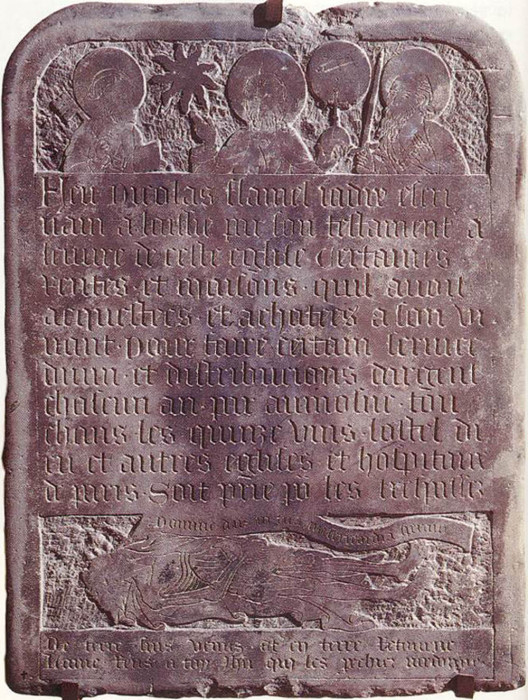 Feu nicolas flamel jadis escri
vain a laissie par son testament a
leuvre de ceste eglise certaines
rentes et maisons quil avoit
acquestees et achatees a son vi
vant pour faire certain service
divin et distribucions dargent
chascun an par aumosne tou
chans les quinze vins lostel di
eu et autres eglises et hospitaux
de paris Soit prie po les trespassez
Domine
De terre suis venus et en terre retourne
Lame rens a toy qui les pechiez